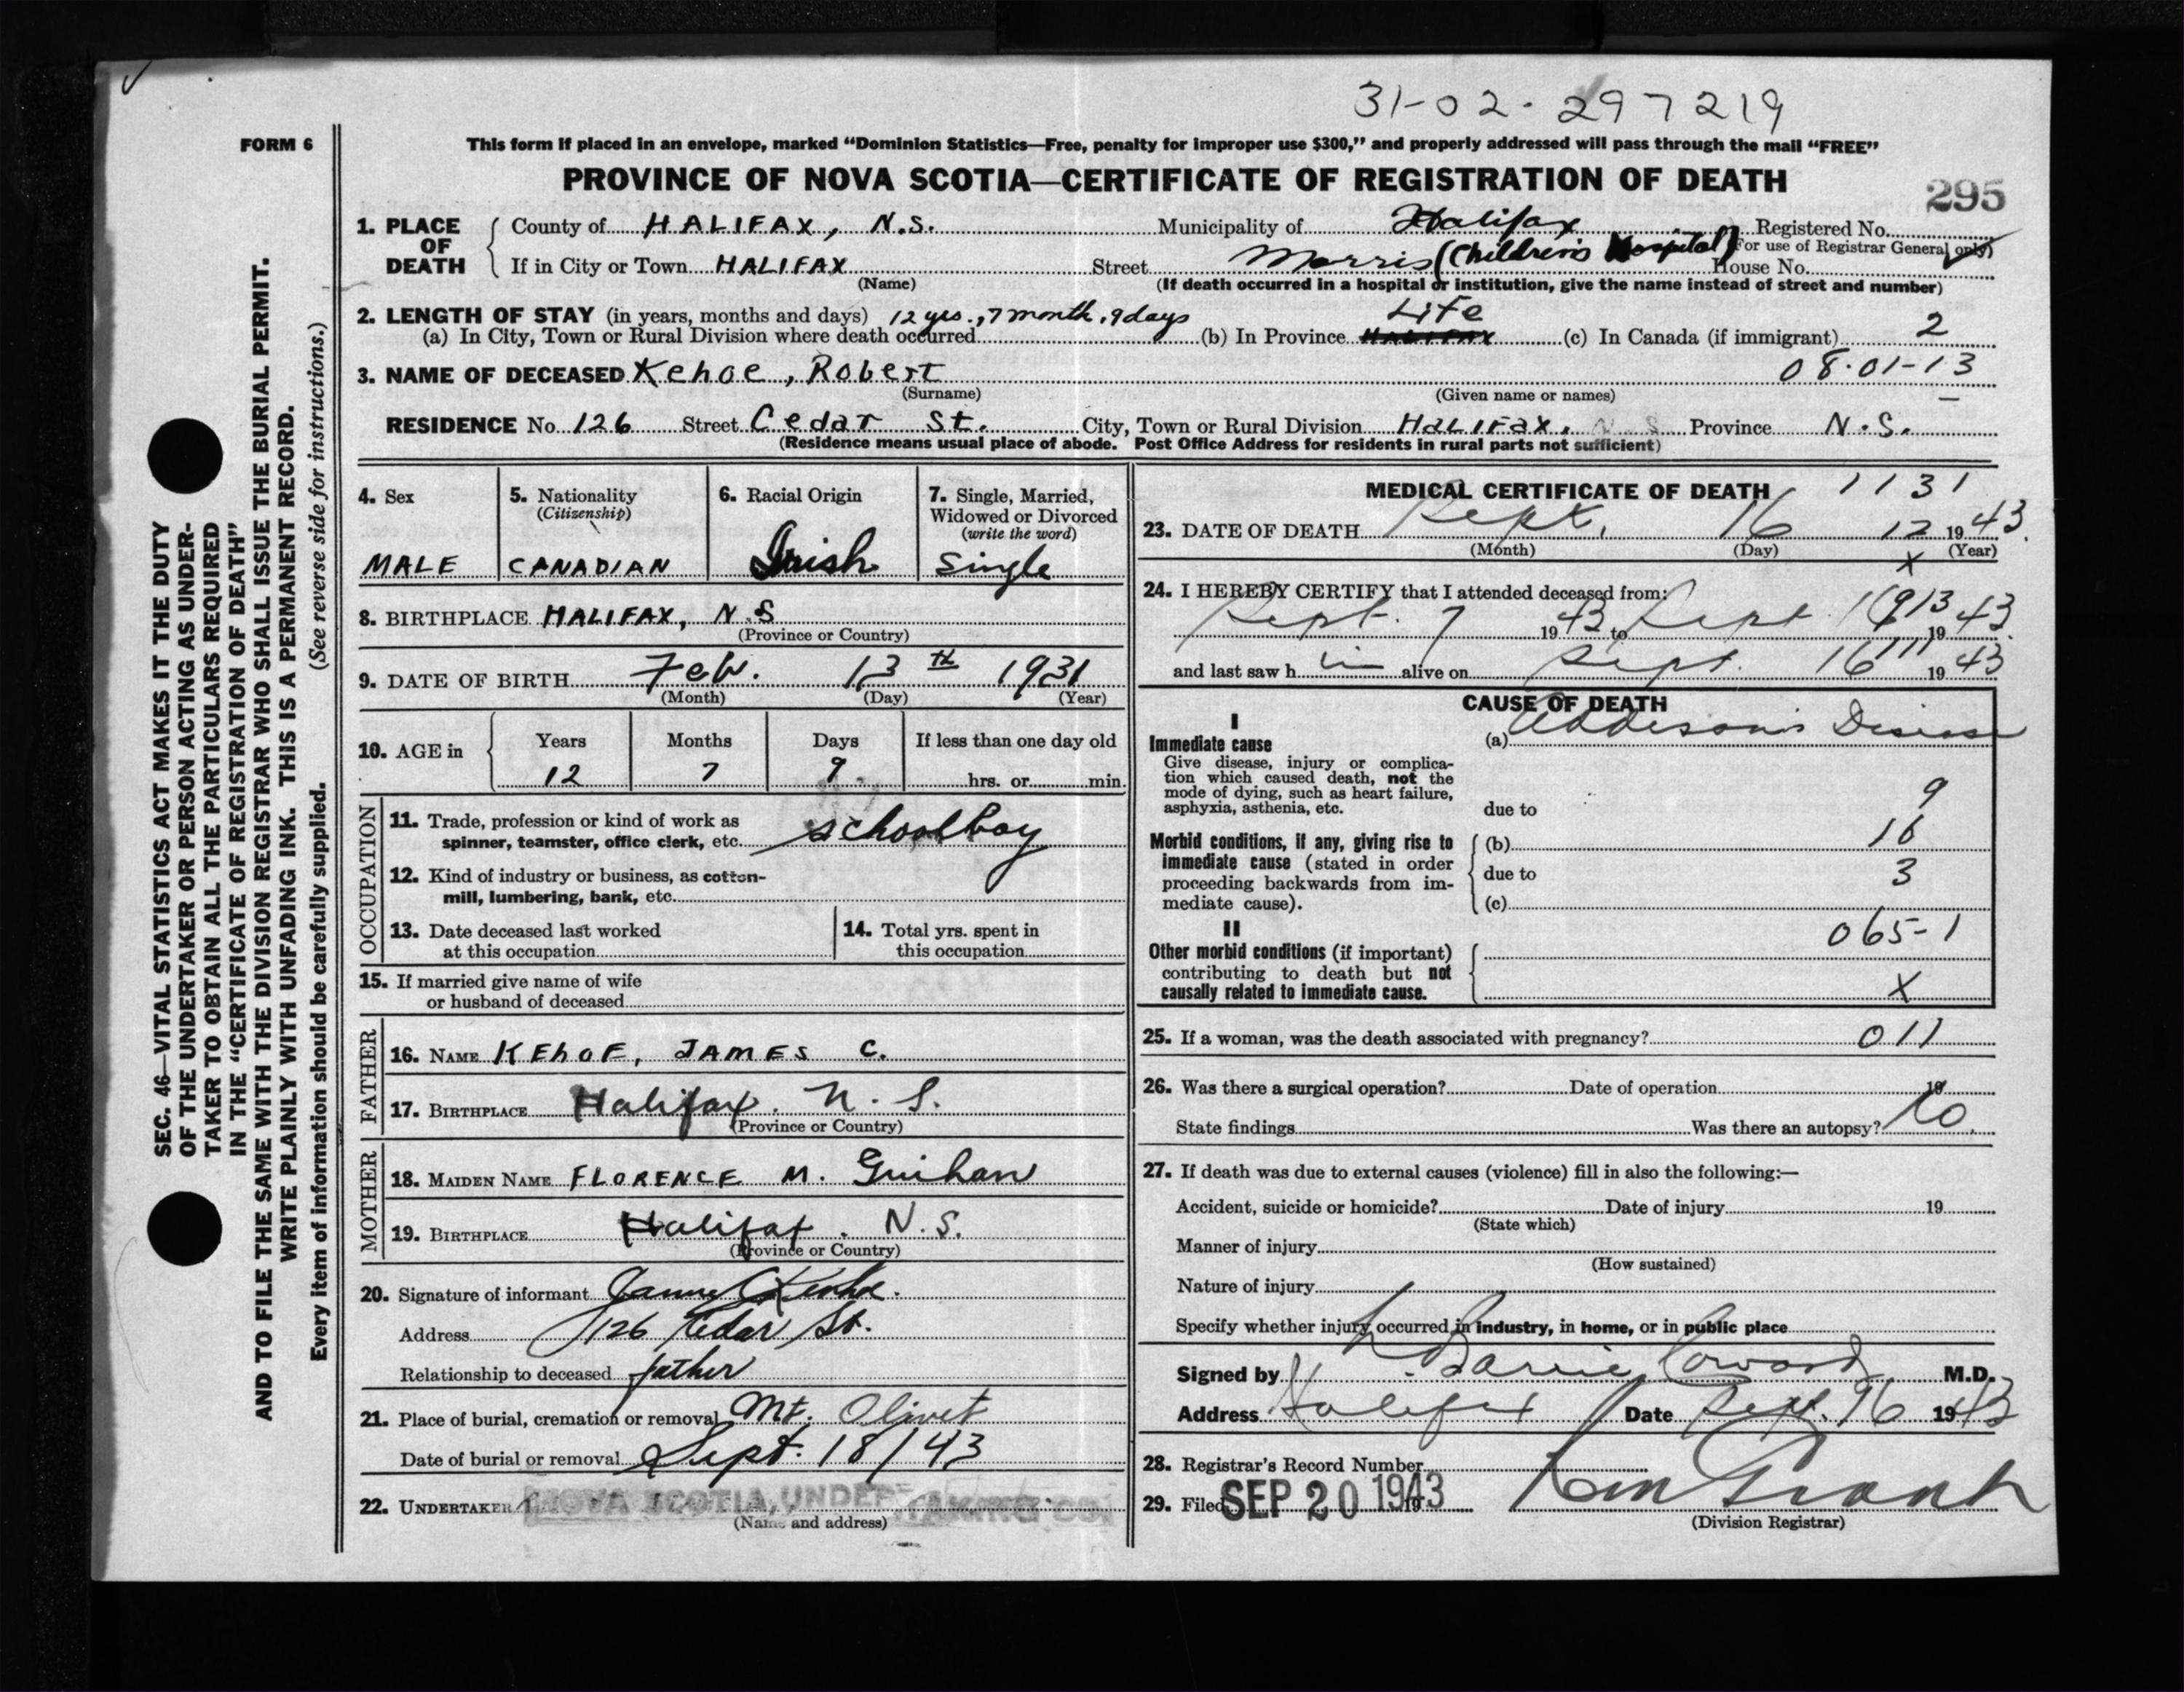 31-02-297219
FORM 6
This form if placed in an envelope, marked "Dominion Statistics—Free, penalty for improper use $300," and properly addressed will pass through the mail "FREE"
PROVINCE OF NOVA SCOTIA—CERTIFICATE OF REGISTRATION OF DEATH
295
1. PLACE OF DEATH
County of HALIFAX, N.S. Municipality of Halifax Registered No.
(For use of Registrar General only)
If in City or Town HALIFAX Street Morris (Children's Hospital) House No.
(Name) (If death occurred in a hospital or institution, give the name instead of street and number)
2. LENGTH OF STAY (in years, months and days) 12 yrs., 7 month, 9 days Life
(a) In City, Town or Rural Division where death occurred (b) In Province HALIFAX (c) In Canada (if immigrant) 2
3. NAME OF DECEASED Kehoe, Robert 08.01-13
(Surname) (Given name or names)
RESIDENCE No. 126 Street Cedar St. City, Town or Rural Division Halifax, N.S Province N.S.
(Residence means usual place of abode. Post Office Address for residents in rural parts not sufficient)
4. Sex
MALE
5. Nationality
(Citizenship)
CANADIAN
6. Racial Origin
Irish
7. Single, Married,
Widowed or Divorced
(write the word)
Single
8. BIRTHPLACE HALIFAX, N.S
(Province or Country)
9. DATE OF BIRTH Feb. 13th 1931
(Month) (Day) (Year)
10. AGE in
Years Months Days If less than one day old
12 7 9 hrs. or min.
OCCUPATION
11. Trade, profession or kind of work as
spinner, teamster, office clerk, etc. schoolboy
12. Kind of industry or business, as cotton-
mill, lumbering, bank, etc.
13. Date deceased last worked
at this occupation
14. Total yrs. spent in
this occupation
15. If married give name of wife
or husband of deceased
FATHER
16. NAME KEhoE, JAMES C.
17. BIRTHPLACE Halifax. N.S.
(Province or Country)
MOTHER
18. MAIDEN NAME FLORENCE M. Guihan
19. BIRTHPLACE Halifax. N.S.
(Province or Country)
20. Signature of informant James C Kehoe.
Address 126 Cedar St.
Relationship to deceased father
21. Place of burial, cremation or removal Mt. Olivet
Date of burial or removal Sept. 18/43
22. UNDERTAKER NOVA SCOTIA UNDERTAKING CO.
(Name and address)
MEDICAL CERTIFICATE OF DEATH 1131
23. DATE OF DEATH Sept. 16 12 1943.
(Month) (Day) (Year)
X
24. I HEREBY CERTIFY that I attended deceased from:
Sept. 7 1943 to Sept 16 1943.
913
and last saw him alive on Sept. 16 1943
111
CAUSE OF DEATH
I
Immediate cause
Give disease, injury or complica-
tion which caused death, not the
mode of dying, such as heart failure,
asphyxia, asthenia, etc.
(a) Addison's Disease
9
due to
Morbid conditions, if any, giving rise to
immediate cause (stated in order
proceeding backwards from im-
mediate cause).
(b) 16
due to 3
(c)
II
065-1
Other morbid conditions (if important)
contributing to death but not
causally related to immediate cause.
X
25. If a woman, was the death associated with pregnancy? 011
26. Was there a surgical operation? Date of operation 19
State findings Was there an autopsy? No.
27. If death was due to external causes (violence) fill in also the following:—
Accident, suicide or homicide? Date of injury 19
(State which)
Manner of injury
(How sustained)
Nature of injury
Specify whether injury occurred in industry, in home, or in public place
Signed by Barrie Coward M.D.
Address Halifax Date Sept. 16 1943
28. Registrar's Record Number
29. Filed SEP 20 1943 19
(Division Registrar)
SEC. 46—VITAL STATISTICS ACT MAKES IT THE DUTY
OF THE UNDERTAKER OR PERSON ACTING AS UNDER-
TAKER TO OBTAIN ALL THE PARTICULARS REQUIRED
IN THE "CERTIFICATE OF REGISTRATION OF DEATH"
AND TO FILE THE SAME WITH THE DIVISION REGISTRAR WHO SHALL ISSUE THE BURIAL PERMIT.
WRITE PLAINLY WITH UNFADING INK. THIS IS A PERMANENT RECORD.
Every item of information should be carefully supplied. (See reverse side for instructions.)